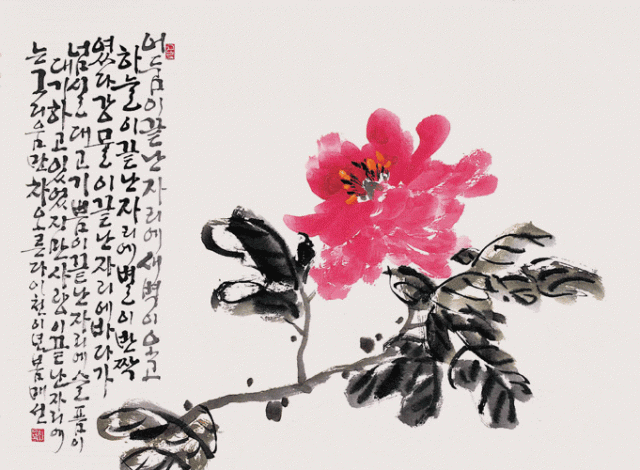 어둠이 끝난 자리에 새벽이 오고
하늘이 끝난 자리에 별이 반짝
였다 강물이 끝난 자리에 바다가
넘실대고 기쁨이 끝난 자리에 슬픔이
대기하고 있었지만 사랑이 끝난 자리에
는 그리움만 차오른다 이천이년 봄 매선